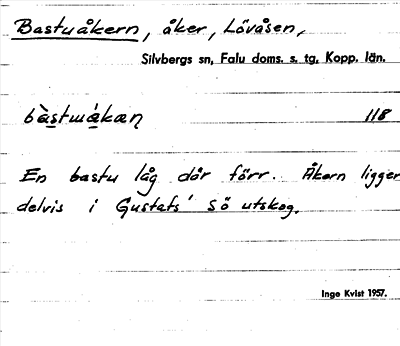 Bastuåkern, åker, Lövåsen,
Silvbergs sn, Falu doms. s. tg, Kopp. län.
bàstuá̀kæɳ 118
En bastu låg där förr. Åkern ligger
delvis i Gustafs' sö utskog.
Inge Kvist 1957.